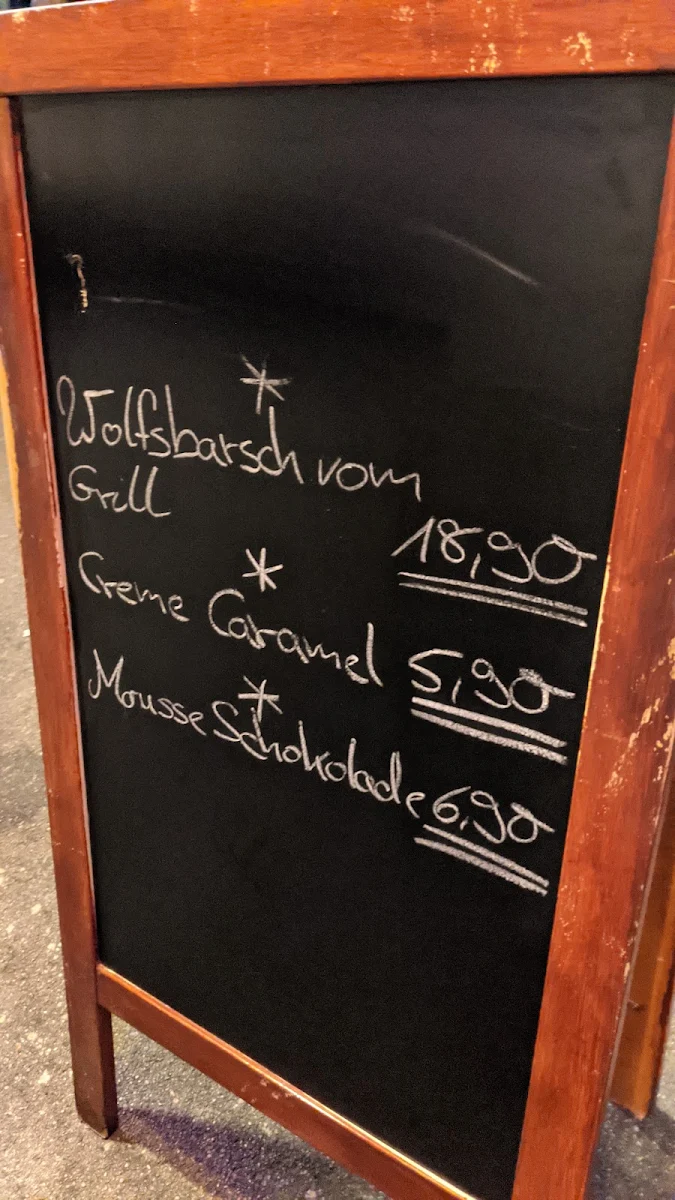 *
Wolfsbarsch vom
Grill
18,90
*
Creme Caramel 5,90
*
Mousse Schokolade 6,90